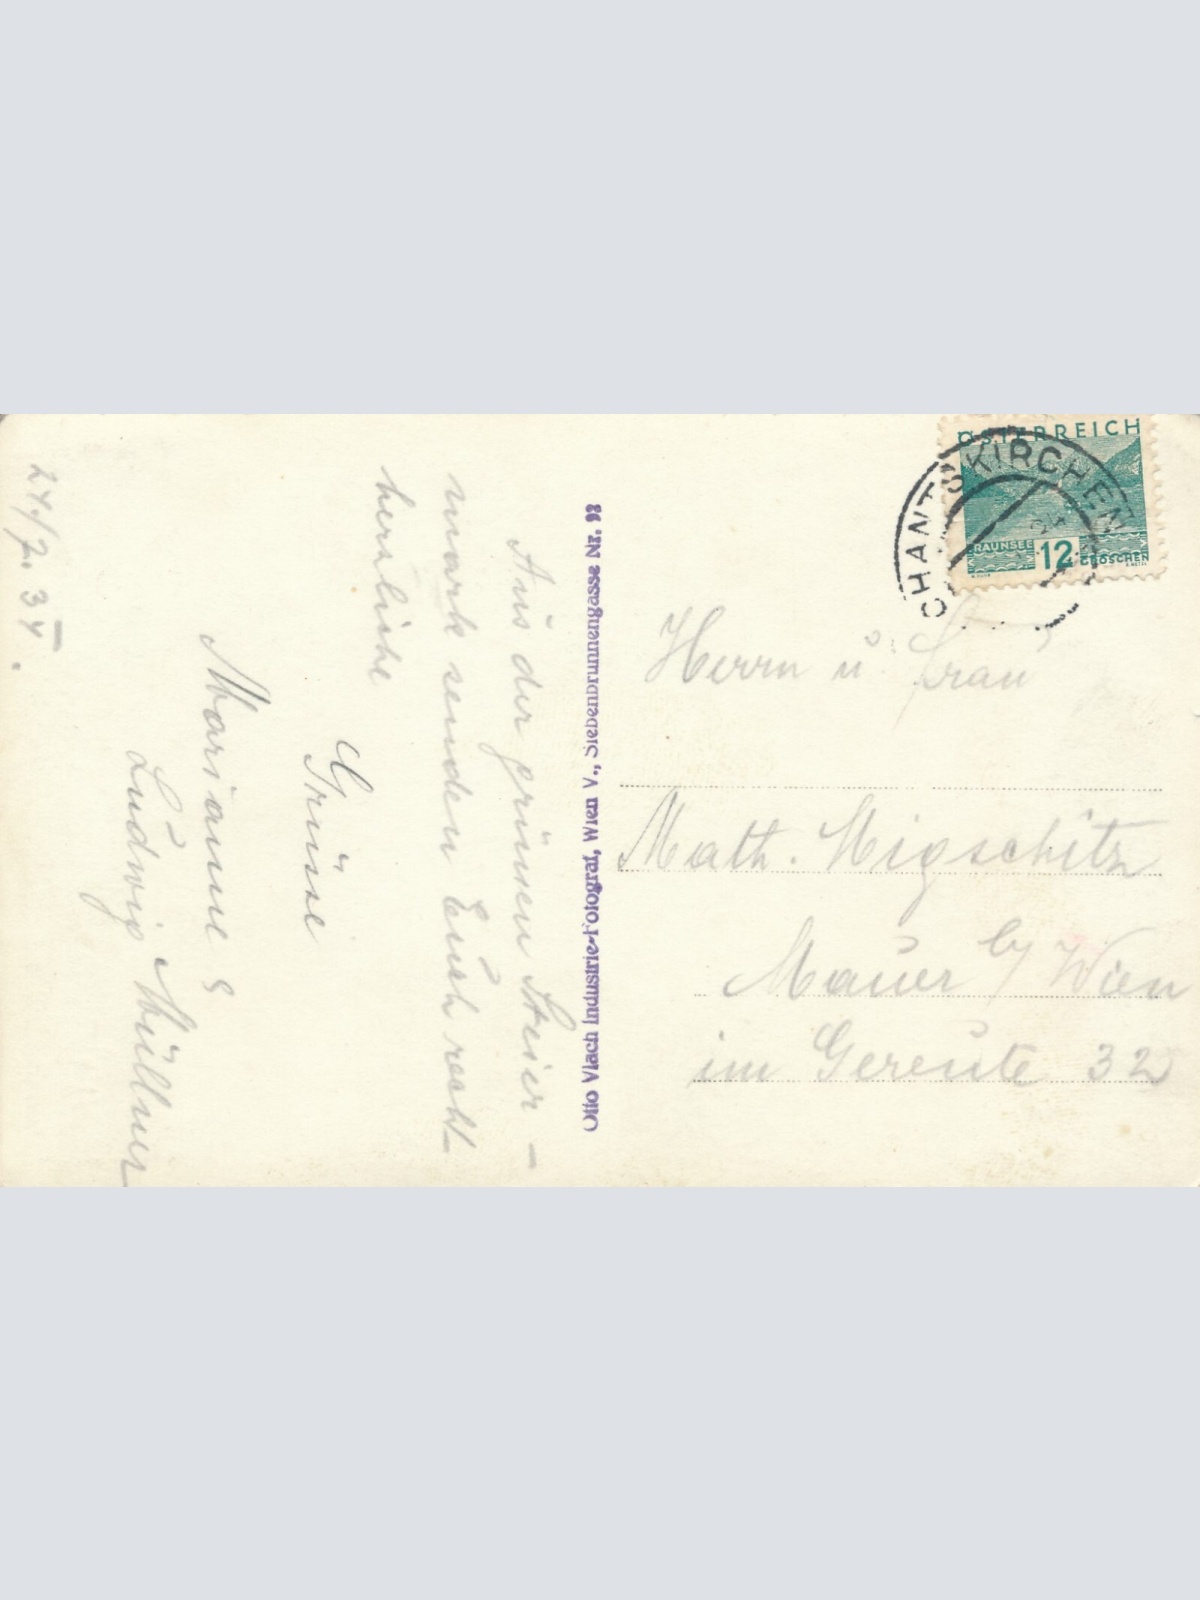 24./7. 34.
Aus der grünen Steier-
mark senden Euch recht
herzliche
Grüsse
Marianne &
Ludwig Müllner
Otto Vlach Industrie-Fotograf, Wien V., Siebenbrunnengasse Nr. 93
ÖSTERREICH
TRAUNSEE 12 GROSCHEN
SCHANTSKIRCHEN
Herrn u. Frau
Math. Migschitz
Mauer b/ Wien
im Gereute 32